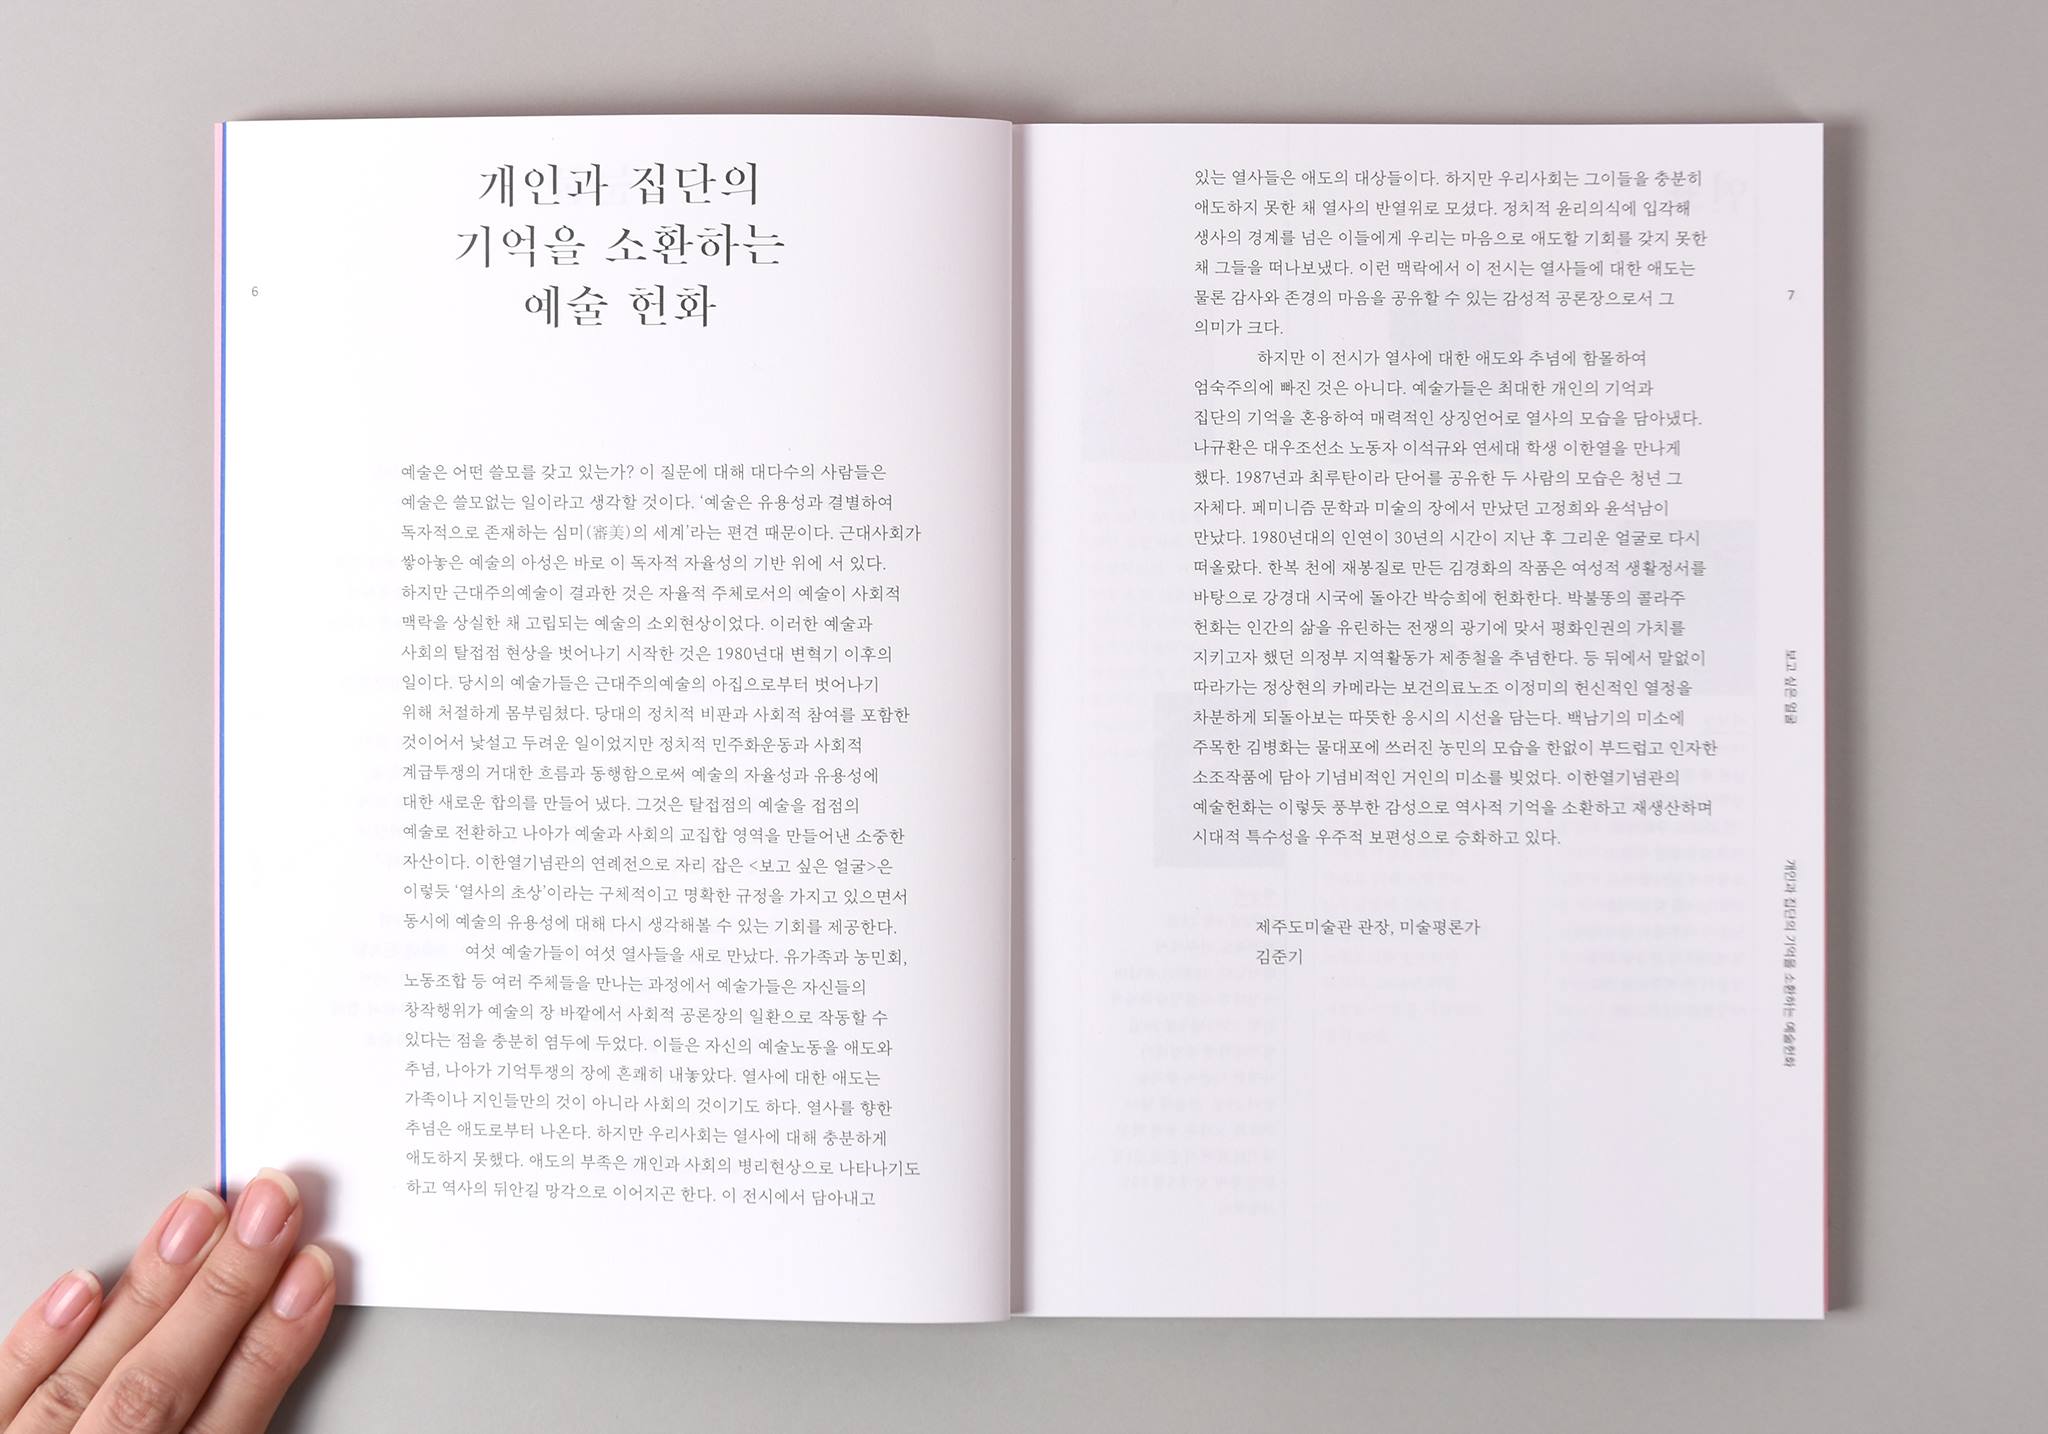 개인과 집단의
기억을 소환하는
예술 헌화
6
예술은 어떤 쓸모를 갖고 있는가? 이 질문에 대해 대다수의 사람들은
예술은 쓸모없는 일이라고 생각할 것이다. ‘예술은 유용성과 결별하여
독자적으로 존재하는 심미(審美)의 세계’라는 편견 때문이다. 근대사회가
쌓아놓은 예술의 아성은 바로 이 독자적 자율성의 기반 위에 서 있다.
하지만 근대주의예술이 결과한 것은 자율적 주체로서의 예술이 사회적
맥락을 상실한 채 고립되는 예술의 소외현상이었다. 이러한 예술과
사회의 탈접점 현상을 벗어나기 시작한 것은 1980년대 변혁기 이후의
일이다. 당시의 예술가들은 근대주의예술의 아집으로부터 벗어나기
위해 처절하게 몸부림쳤다. 당대의 정치적 비판과 사회적 참여를 포함한
것이어서 낯설고 두려운 일이었지만 정치적 민주화운동과 사회적
계급투쟁의 거대한 흐름과 동행함으로써 예술의 자율성과 유용성에
대한 새로운 합의를 만들어 냈다. 그것은 탈접점의 예술을 접점의
예술로 전환하고 나아가 예술과 사회의 교집합 영역을 만들어낸 소중한
자산이다. 이한열기념관의 연례전으로 자리 잡은 <보고 싶은 얼굴>은
이렇듯 ‘열사의 초상’이라는 구체적이고 명확한 규정을 가지고 있으면서
동시에 예술의 유용성에 대해 다시 생각해볼 수 있는 기회를 제공한다.
여섯 예술가들이 여섯 열사들을 새로 만났다. 유가족과 농민회,
노동조합 등 여러 주체들을 만나는 과정에서 예술가들은 자신들의
창작행위가 예술의 장 바깥에서 사회적 공론장의 일환으로 작동할 수
있다는 점을 충분히 염두에 두었다. 이들은 자신의 예술노동을 애도와
추념, 나아가 기억투쟁의 장에 흔쾌히 내놓았다. 열사에 대한 애도는
가족이나 지인들만의 것이 아니라 사회의 것이기도 하다. 열사를 향한
추념은 애도로부터 나온다. 하지만 우리사회는 열사에 대해 충분하게
애도하지 못했다. 애도의 부족은 개인과 사회의 병리현상으로 나타나기도
하고 역사의 뒤안길 망각으로 이어지곤 한다. 이 전시에서 담아내고
있는 열사들은 애도의 대상들이다. 하지만 우리사회는 그이들을 충분히
애도하지 못한 채 열사의 반열위로 모셨다. 정치적 윤리의식에 입각해
생사의 경계를 넘은 이들에게 우리는 마음으로 애도할 기회를 갖지 못한
채 그들을 떠나보냈다. 이런 맥락에서 이 전시는 열사들에 대한 애도는
물론 감사와 존경의 마음을 공유할 수 있는 감성적 공론장으로서 그
의미가 크다.
하지만 이 전시가 열사에 대한 애도와 추념에 함몰하여
엄숙주의에 빠진 것은 아니다. 예술가들은 최대한 개인의 기억과
집단의 기억을 혼융하여 매력적인 상징언어로 열사의 모습을 담아냈다.
나규환은 대우조선소 노동자 이석규와 연세대 학생 이한열을 만나게
했다. 1987년과 최루탄이라 단어를 공유한 두 사람의 모습은 청년 그
자체다. 페미니즘 문학과 미술의 장에서 만났던 고정희와 윤석남이
만났다. 1980년대의 인연이 30년의 시간이 지난 후 그리운 얼굴로 다시
떠올랐다. 한복 천에 재봉질로 만든 김경화의 작품은 여성적 생활정서를
바탕으로 강경대 시국에 돌아간 박승희에 헌화한다. 박불똥의 콜라주
헌화는 인간의 삶을 유린하는 전쟁의 광기에 맞서 평화인권의 가치를
지키고자 했던 의정부 지역활동가 제종철을 추념한다. 등 뒤에서 말없이
따라가는 정상현의 카메라는 보건의료노조 이정미의 헌신적인 열정을
차분하게 되돌아보는 따뜻한 응시의 시선을 담는다. 백남기의 미소에
주목한 김병화는 물대포에 쓰러진 농민의 모습을 한없이 부드럽고 인자한
소조작품에 담아 기념비적인 거인의 미소를 빚었다. 이한열기념관의
예술헌화는 이렇듯 풍부한 감성으로 역사적 기억을 소환하고 재생산하며
시대적 특수성을 우주적 보편성으로 승화하고 있다.
제주도미술관 관장, 미술평론가
김준기
7
보고 싶은 얼굴
개인과 집단의 기억을 소환하는 예술헌화